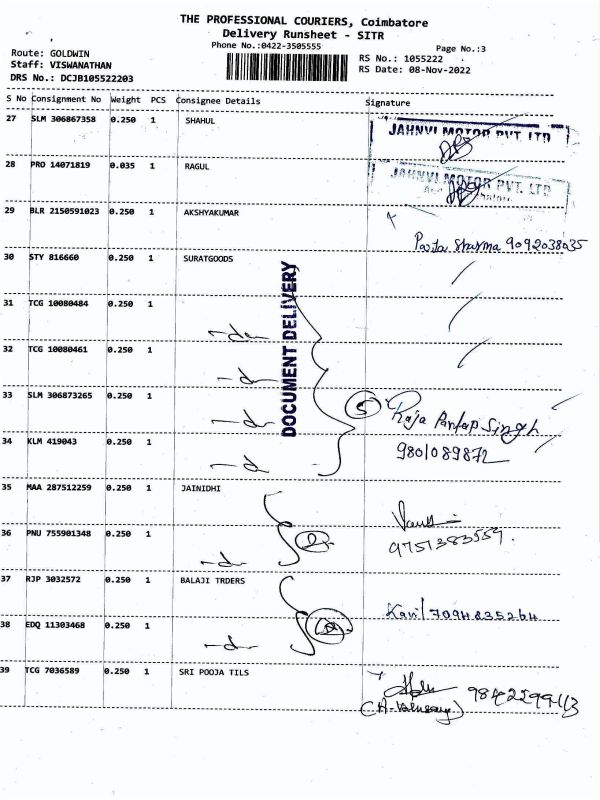 THE PROFESSIONAL COURIERS, Coimbatore
Delivery Runsheet - SITR
Phone No.:0422-3505555
Page No.:3
Route: GOLDWIN
RS No.: 1055222
Staff: VISWANATHAN
RS Date: 08-Nov-2022
DRS No.: DCJB105522203
S No Consignment No Weight PCS Consignee Details Signature
27 SLM 306867358 0.250 1 SHAHUL
JAHNVI MOTOR PVT. LTD
28 PRO 14071819 0.035 1 RAGUL
JAHNVI MOTOR PVT. LTD
29 BLR 2150591023 0.250 1 AKSHYAKUMAR
Pooja Sharma 9092038035
30 STY 816660 0.250 1 SURATGOODS
DOCUMENT DELIVERY
31 TCG 10080484 0.250 1
-do-
32 TCG 10080461 0.250 1
-do-
33 SLM 306873265 0.250 1
-do-
5 Raja Partap Singh
34 KLM 419043 0.250 1
9801089872
-do-
35 MAA 287512259 0.250 1 JAINIDHI
36 PNU 755901348 0.250 1
2
9751383559.
-do-
37 RJP 3032572 0.250 1 BALAJI TRDERS
Kavi/7094835264
38 EDQ 11303468 0.250 1
-do-
39 TCG 7036589 0.250 1 SRI POOJA TILS
9842299113